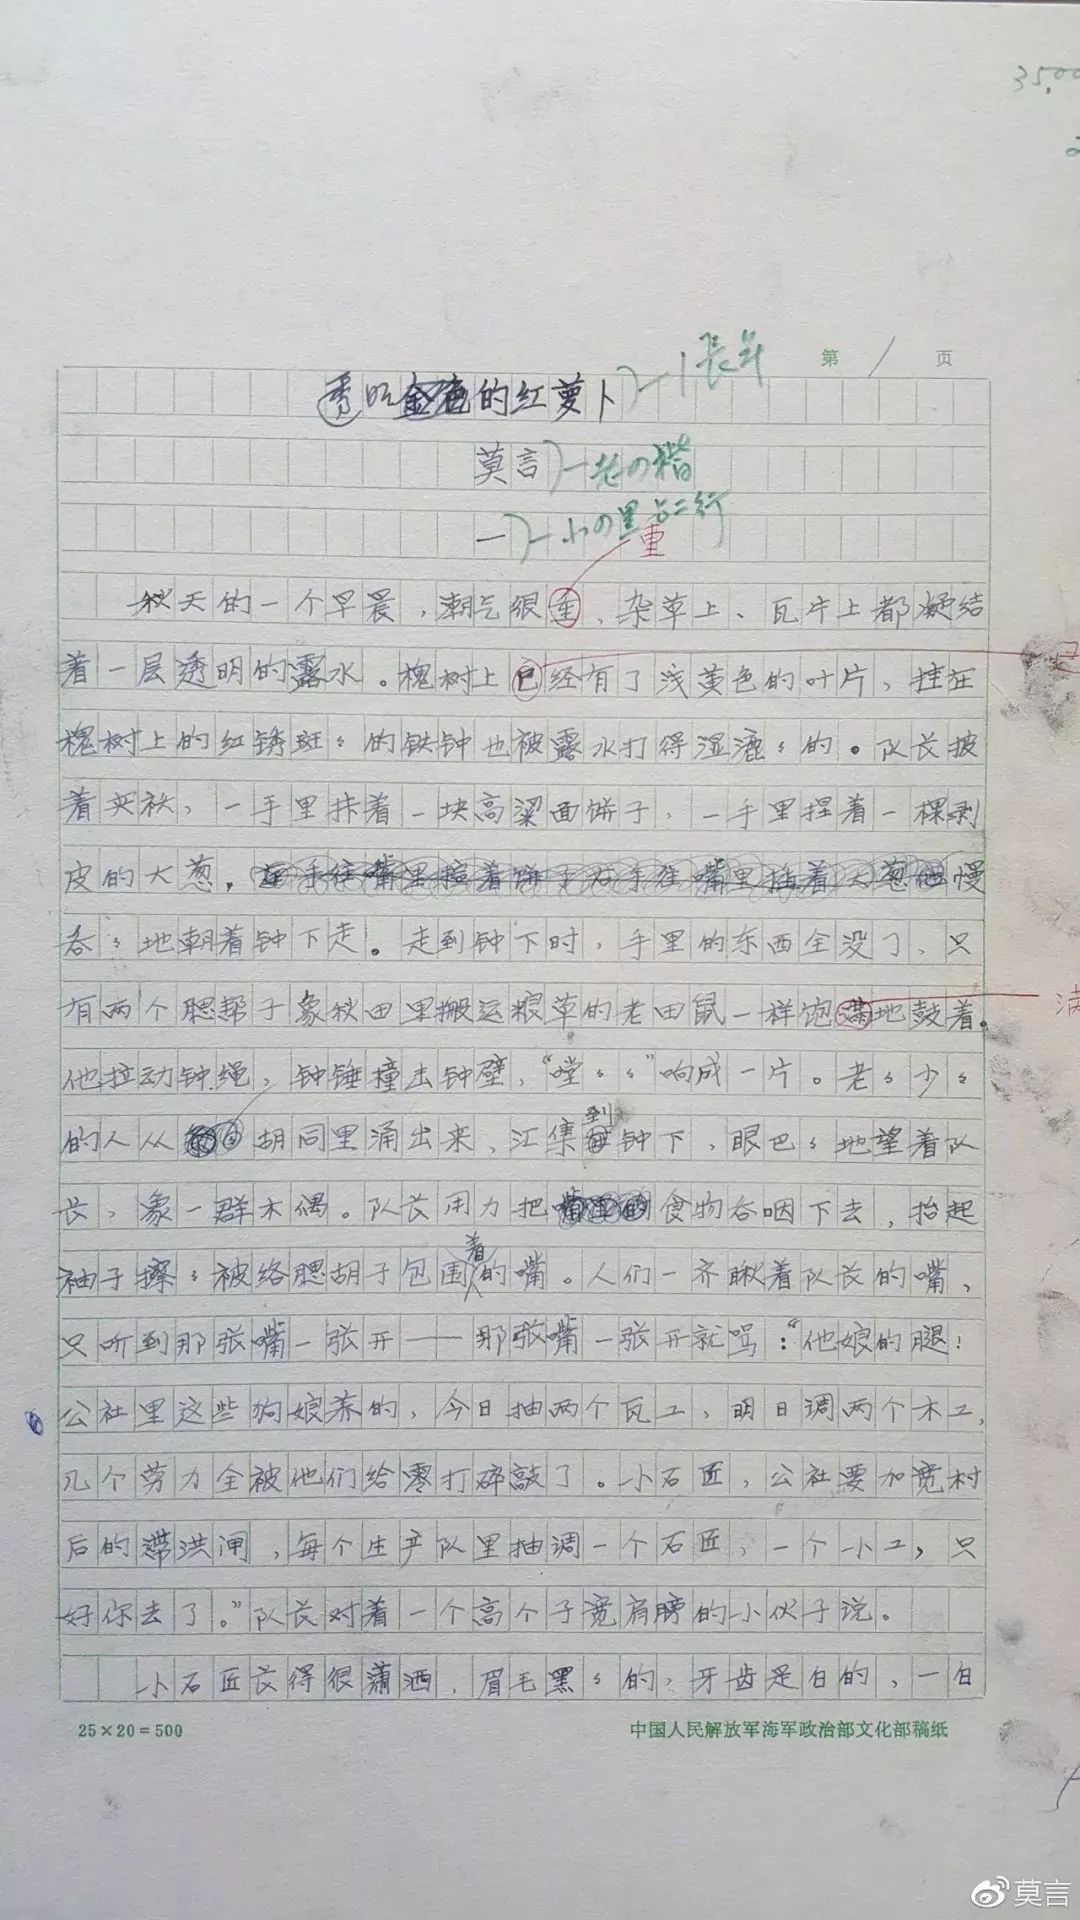 35,00
第 1 页
透明金色的红萝卜
莫言
一
重
秋天的一个早晨，潮气很重，杂草上、瓦片上都凝结
着一层透明的露水。槐树上已经有了浅黄色的叶片，挂在
槐树上的红锈斑々的铁钟也被露水打得湿漉々的。队长披
着夹袄，一手里抹着一块高粱面饼子，一手里捏着一棵剥
皮的大葱，慢
吞々地朝着钟下走。走到钟下时，手里的东西全没了，只
有两个腮帮子象秋田里搬运粮草的老田鼠一样饱满地鼓着。
满
他拉动钟绳，钟锤撞击钟壁，“嘡々々”响成一片。老々少々
的人从胡同里涌出来，汇集到钟下，眼巴々地望着队
长，象一群木偶。队长用力把食物吞咽下去，抬起
袖子擦々被络腮胡子包围着的嘴。人们一齐瞅着队长的嘴，
只听到那张嘴一张开——那张嘴一张开就骂：“他娘的腿！
公社里这些狗娘养的，今日抽两个瓦工，明日调两个木工，
几个劳力全被他们给零打碎敲了。小石匠，公社要加宽村
后的滞洪闸，每个生产队里抽调一个石匠，一个小工，只
好你去了。”队长对着一个高个子宽肩膀的小伙子说。
小石匠长得很潇洒，眉毛黑々的，牙齿是白的，一白
25×20=500
中国人民解放军海军政治部文化部稿纸
莫言